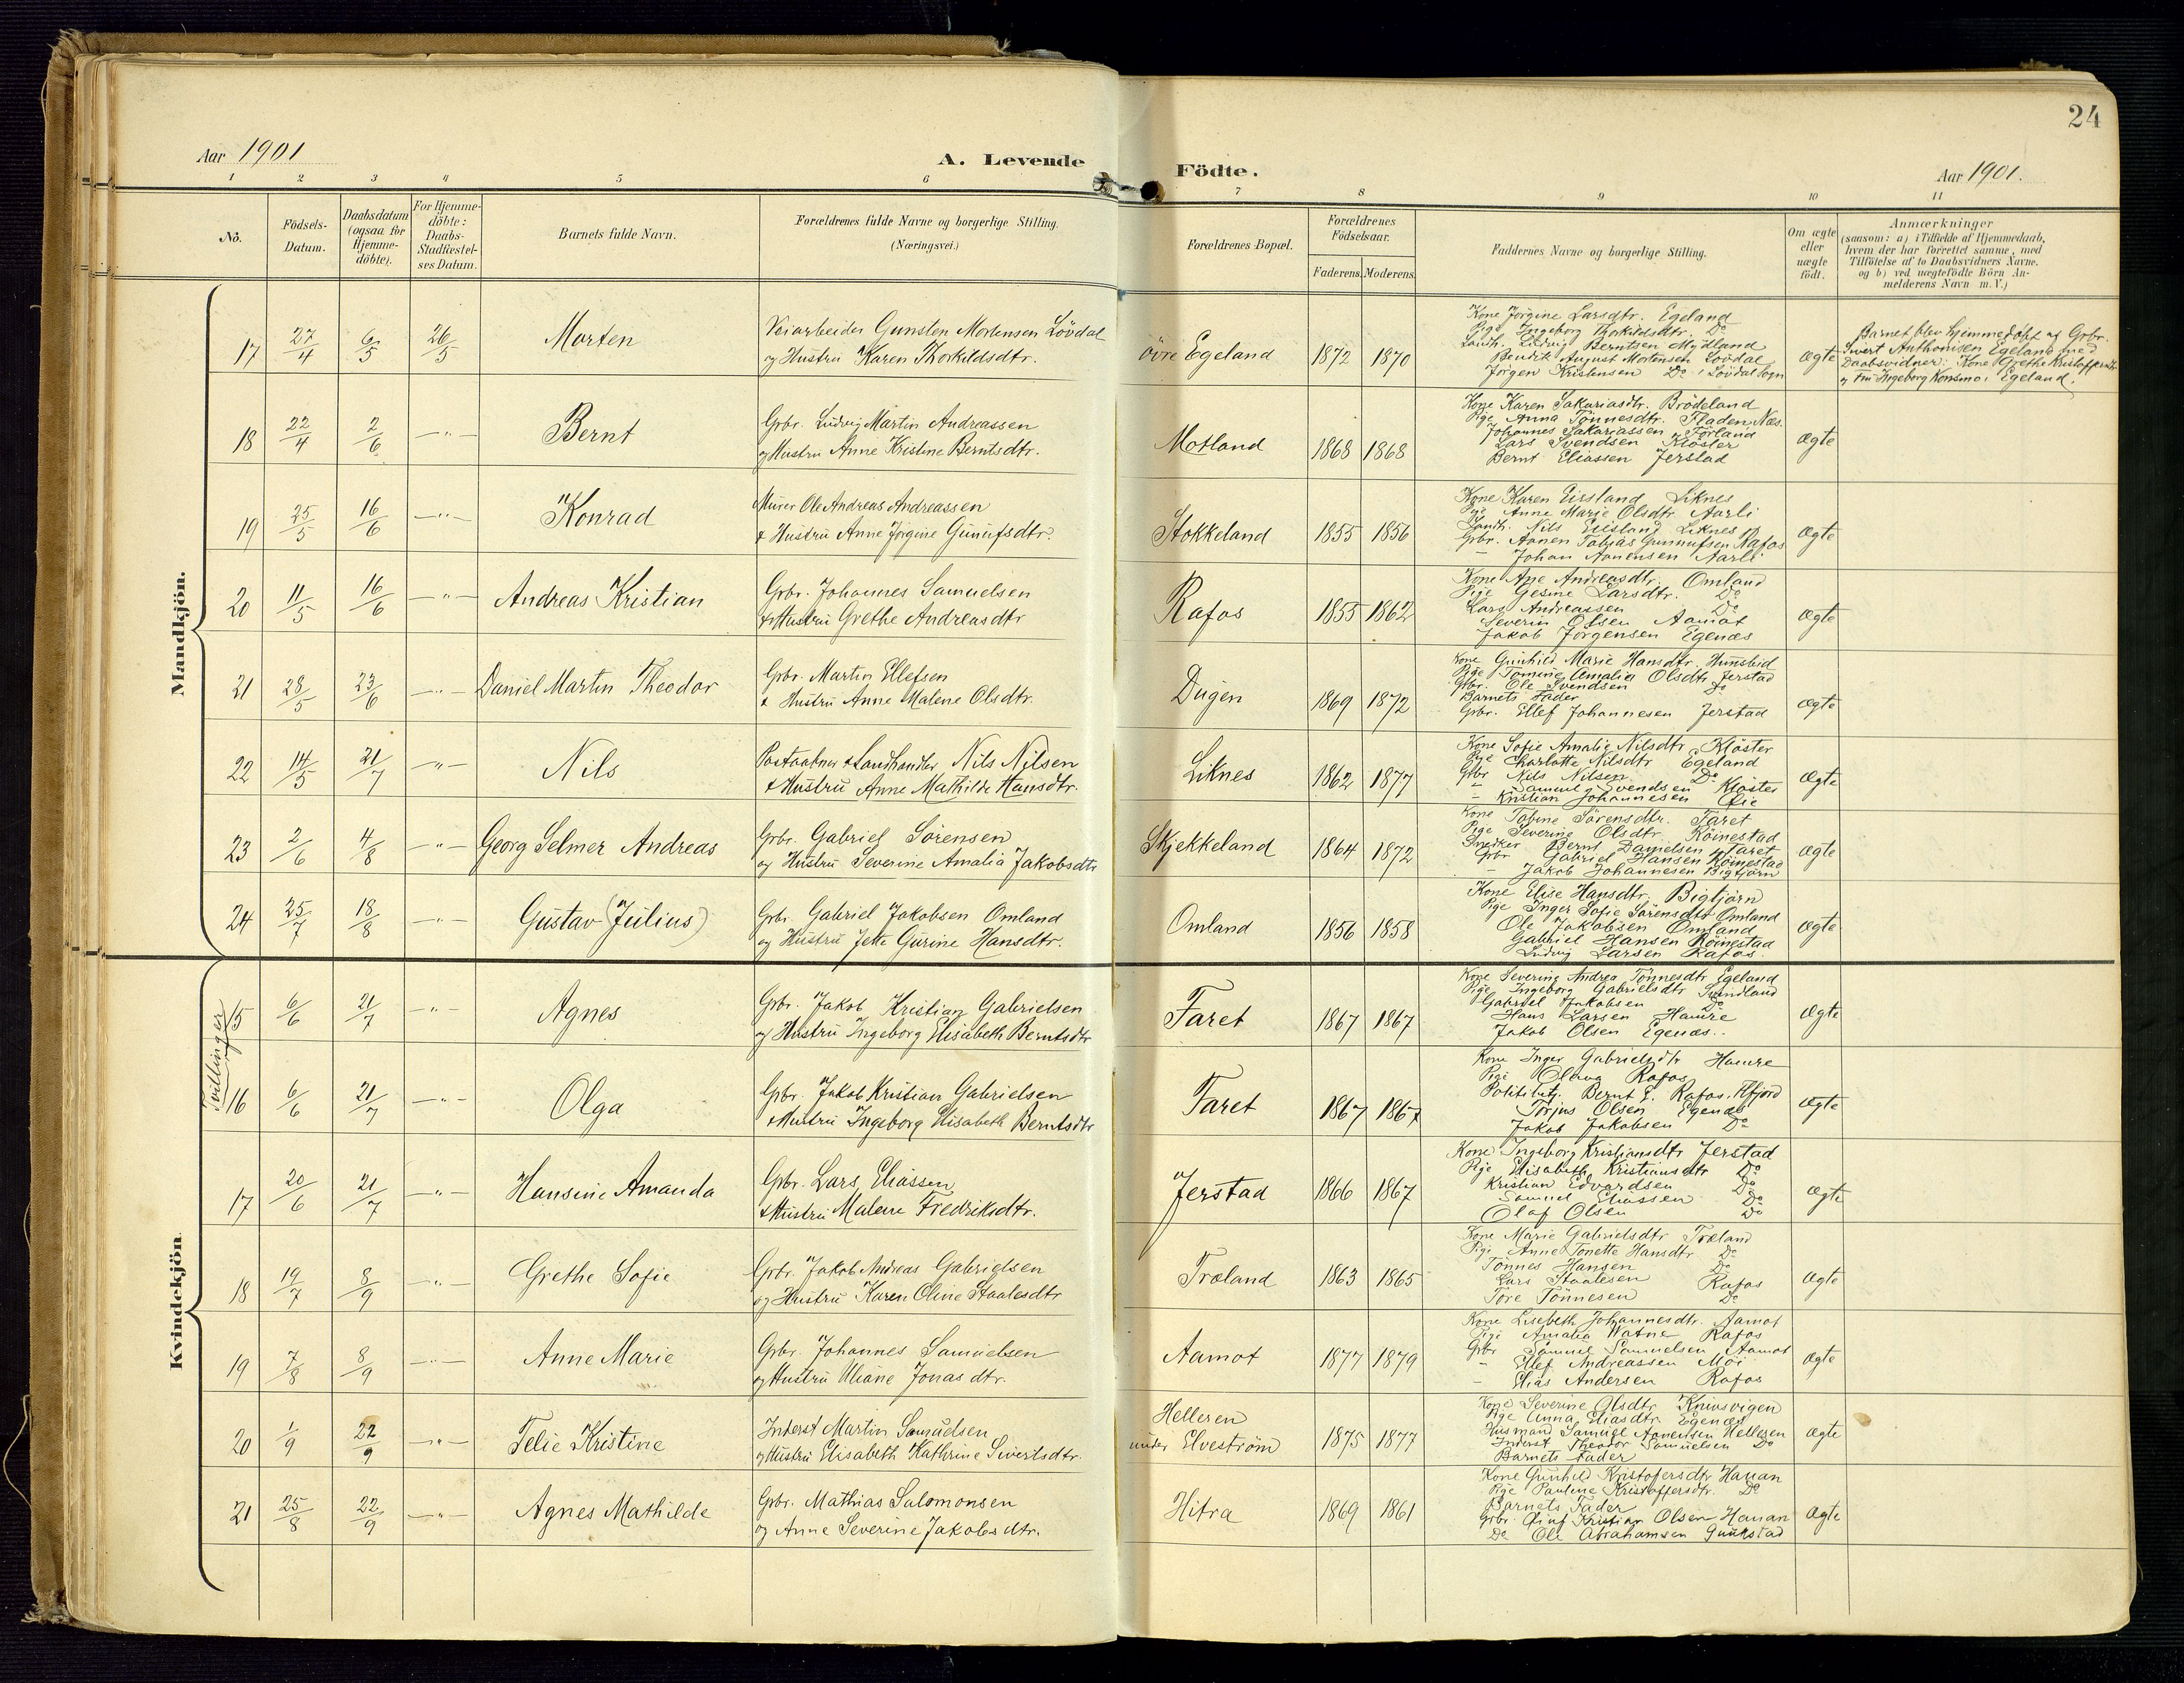 24
Aar 1901
A. Levende
Födte.
Aar 1901.
1 2 3 4 5 6 7 8 9 10 11
Nô.
Födsels-Datum.
Daabsdatum (ogsaa for Hjemme-döbte).
For Hjemme-döbte: Daabs-Stadfæstel-ses Datum.
Barnets fulde Navn.
Forældrenes fulde Navne og borgerlige Stilling. (Næringsvei.)
Forældrenes Bopæl.
Forældrenes Födselsaar.
Faderens. Moderens.
Faddernes Navne og borgerlige Stilling.
Om ægte eller uægte födt.
Anmærkninger
(saasom: a) i Tilfælde af Hjemmedaab,
hvem der har forrettet samme, med
Tilföielse af to Daabsvidners Navne.
og b) ved uægtefödte Börn An-
melderens Navn m. V.)
Mandkjön.
17 27/4 6/5 26/5 Morten
Veiarbeider Gunsten Mortensen Lövdal
og Hustru Karen Thorkildsdtr.
övre Egeland 1872 1870
Kone Jörgine Larsdtr. Egeland
Pige Ingeborg Thorkildsdtr. Do
Landh. Ludvig Berntsen Mydland
Bendik August Mortensen Lövdal
Jörgen Kristensen Do i Lövdal Sogn
ægte
Barnet blev hjemmedöbt af Grbr.
Sivert Anthonisen Egeland med
Daabsvidner: Kone Grethe Kristoffersdtr.
og Fru Ingeborg Konsmo, Egeland.
18 22/4 2/6 — " — Bernt
Grbr. Ludvig Martin Andreassen
og Hustru Anne Kristine Berntsdtr.
Motland 1868 1868
Kone Karen Sakariasdtr. Brödeland
Pige Anna Tönnesdtr. Fladen, Næs.
Johannes Sakariassen Förland
Lars Svendsen Klöster
Bernt Eliassen Jerstad
ægte
19 25/5 16/6 — " — Konrad
Murer Ole Andreas Andreassen
& Hustru Anne Jörgine Gunufsdtr.
Stokkeland 1855 1856
Kone Karen Eissland Liknes
Pige Anne Marie Olsdtr Aarli
Landh. Nils Eissland Liknes
Grbr. Aanen Tobias Gunnufsen Rafos
— Johan Aanensen Aarli
ægte
20 11/5 16/6 — " — Andreas Kristian
Grbr. Johannes Samuelsen
& Hustru Grethe Andreasdtr
Rafos 1855 1862
Kone Ane Andreasdtr. Omland
Pige Gesine Larsdtr. Do
Lars Andreassen Do
Severin Olsen Aamot
Jakob Jörgensen Egenæs
ægte
21 28/5 23/6 — " — Daniel Martin Theodor
Grbr. Martin Ellefsen
& Hustru Anne Malene Olsdtr.
Dugen 1869 1872
Kone Gunhild Marie Hansdtr. Hunsbeid
Pige Tomine Amalia Olsdtr Jerstad
Grbr. Ole Svendsen Do
Barnets Fader
Grbr. Ellef Johannesen Jerstad
ægte
22 14/5 21/7 — " — Nils
Postaabner & Landhandler Nils Nilsen
& Hustru Anne Mathilde Hansdtr.
Liknes 1862 1877
Kone Sofie Amalie Nilsdtr Klöster
Pige Charlotte Nilsdtr Egeland
Grbr Nils Nilsen Do
— Samuel Svendsen Klöster
— Kristian Johannesen Öie
ægte
23 2/6 4/8 — " — Georg Selmer Andreas
Grbr. Gabriel Sörensen
og Hustru Severine Amalia Jakobsdtr
Skjekkeland 1864 1872
Kone Tobine Sörensdtr. Faret
Pige Severine Olsdtr. Röinestad
Snedker Bernt Danielsen Faret
Grbr Gabriel Hansen Röinestad
— Jakob Johannesen Bigtjörn
ægte
24 25/7 18/8 — " — Gustav (Julius)
Grbr. Gabriel Jakobsen Omland
og Hustru Jette Gurine Hansdtr.
Omland 1856 1858
Kone Elise Hansdtr. Bigtjörn
Pige Inger Sofie Sörensdtr Omland
Ole Jakobsen Omland
Gabriel Hansen Röinestad
Ludvig Larsen Rafos.
ægte
Kvindekjön
Tvillinger
15 6/6 21/7 — " — Agnes
Grbr. Jakob Kristian Gabrielsen
og Hustru Ingeborg Elisabeth Berntsdtr
Faret 1867 1867
Kone Severine Andrea Tönnesdtr Egeland
Pige Ingeborg Gabrielsdtr Svindland
Gabriel Jakobsen Do
Hans Larsen Hamre
Jakob Olsen Egenæs.
ægte
16 6/6 21/7 — " — Olga
Grbr. Jakob Kristian Gabrielsen
& Hustru Ingeborg Elisabeth Berntsdtr
Faret 1867 1867
Kone Inger Gabrielsdtr Hamre
Pige Olava Rafos
Politibetj. Bernt E. Rafos, Flfjord
Torjus Olsen Egenæs
Jakob Jakobsen Do
ægte
17 20/6 21/7 — " — Hansine Amanda
Grbr. Lars Eliassen
& Hustru Malene Fredriksdtr.
Jerstad 1866 1867
Kone Ingeborg Kristiansdtr Jerstad
Pige Elisabeth Kristiansdtr Do
Kristian Edvardsen Do
Samuel Eliassen Do
Olaf Olsen Do
ægte
18 19/7 8/9 — " — Grethe Sofie
Grbr. Jakob Andreas Gabrielsen
og Hustru Karen Oline Staalesdtr
Træland 1863 1865
Kone Marie Gabrielsdtr Træland
Pige Anne Tonette Hansdtr Do
Tönnes Hansen Do
Lars Staalesen Rafos
Tore Tönnesen Do
ægte
19 7/8 8/9 — " — Anne Marie
Grbr. Johannes Samuelsen
og Hustru Uliane Jonasdtr.
Aamot 1877 1879
Kone Lisebeth Johannesdtr. Aamot
Pige Amalia Watne Rafos
Grbr Samuel Samuelsen Aamot
— Ellef Andreassen Moi
— Elias Andersen Rafos
ægte
20 1/9 22/9 — " — Telie Kristine
Inderst Martin Samuelsen
og Hustru Elisabeth Kathrine Sivertsdtr.
Helleren
under Elveström 1875 1877
Kone Severine Olsdtr Knivsvigen
Pige Anna Eliasdtr. Egenæs
Husmand Samuel Aanensen Helleren
Inderst Theodor Samuelsen Do
Barnets Fader
ægte
21 25/8 22/9 — " — Agnes Mathilde
Grbr. Mathias Salomonsen
og Anne Severine Jakobsdtr.
Hitra 1869 1861
Kone Gunhild Kristofersdtr Hanan
Pige Pauline Kristoffersdtr. Do
Barnets Fader
Grbr. Oluf Kristian Olsen Hanan
Do Ole Abrahamsen Gulkstad
ægte